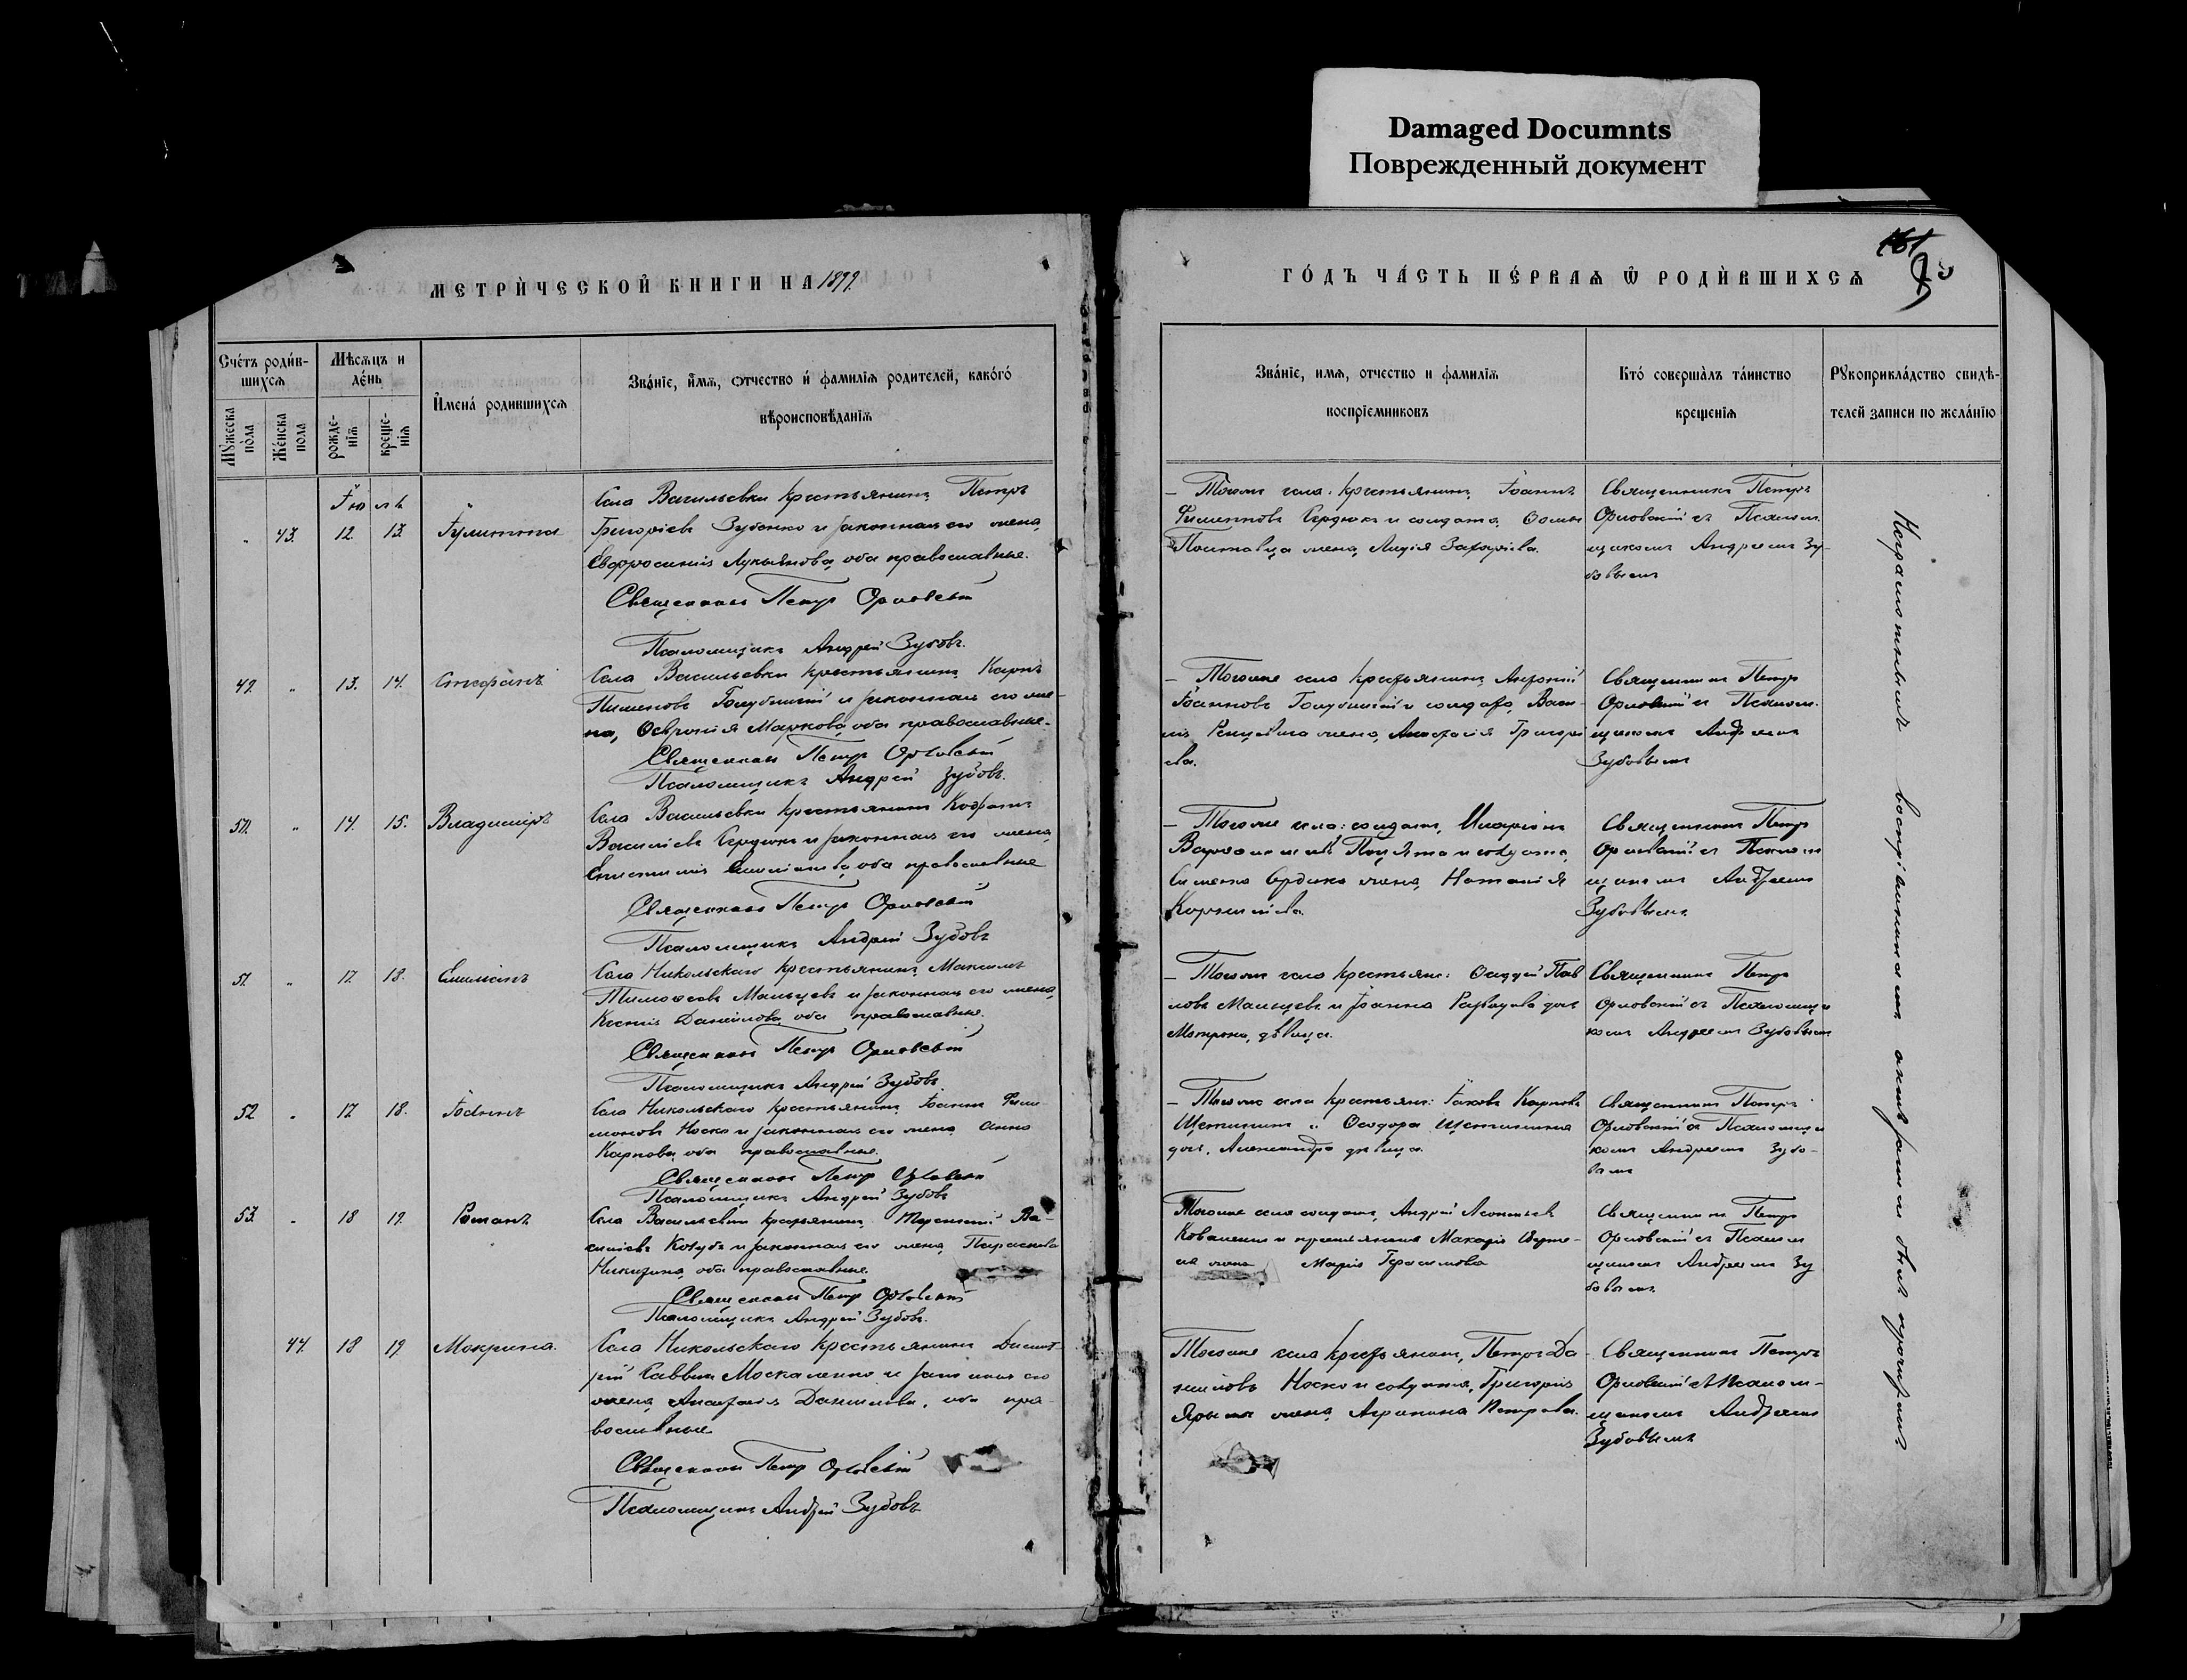 Damaged Documnts
Поврежденный документ
МЕТРИ́ЧЕСКОЙ КНИГИ НА 1899.
ГО́ДЪ ЧА́СТЬ ПЕ́РВАѦ Ѿ РОДИ́ВШИХСѦ
Сче́тъ роди́в-
шихсѧ
Мѣсѧцъ и
де́нь
Мꙋжеска
по̀ла
Же́нска
пола
рожде-
нїѧ
креще-
нїѧ
И҆мена́ родившихсѧ
Зва́нїе, и҆́мѧ, ѻтчество и҆ фамилїѧ родителей, како́гѡ
вѣроисповѣданїѧ
Зва́нїе, имѧ, отчество и фамилїѧ
воспрїемниковъ
Кто́ соверша̀лъ та́инство
крещенїѧ
Рꙋкоприкла́дство свидѣ-
телей записи по жела́нїю
Іюль
43. 12. 13. Іулитта
Села Васильевки крестьянинъ Петръ
Григоріевъ Зубенко и законная его жена,
Евфросинія Лукьянова, оба православные.
Священникъ Петръ Орловскій
Псаломщикъ Андрей Зубовъ.
Тогоже села крестьянинъ Іоаннъ
Сердюкъ и солдата Ѳомы
жена, Лидія Захаріева.
Священникъ Петръ
Орловскій съ Псалом-
щикомъ Андреемъ Зу-
бовымъ
49. " 13. 14. Стефанъ
Села Васильевки крестьянинъ Карпъ
Пименовъ Голубицкій и законная его же-
на, Ѳеврονія Маркова, оба православные.
Священникъ Петръ Орловскій
Псаломщикъ Андрей Зубовъ.
Тогоже села крестьянинъ Антоній
Іоанновъ Голубицкій и солдата, Васи-
лія жена, Анастасія Григорі
ева.
Священникъ Петръ
Орловскій съ Псалом-
щикомъ Андреемъ
Зубовымъ
50. " 14. 15. Владиміръ
Села Васильевки крестьянинъ Кодратъ
Василіевъ Сердюкъ и законная его жена,
оба православные
Священникъ Петръ Орловскій
Псаломщикъ Андрей Зубовъ
Тогоже села: солдатъ, Иларіонъ
и солдата,
Симеона Сердюка жена, Наталія
Корниліева.
Священникъ Петръ
Орловскій съ Псалом
щикомъ Андреемъ
Зубовымъ.
51. " 17. 18. Емиліанъ
Села Никольскаго крестьянинъ Максимъ
Тимоѳеевъ Мальцевъ и законная его жена,
Ксенія Даніилова, оба православные.
Священникъ Петръ Орловскій
Псаломщикъ Андрей Зубовъ.
Тогоже села крестьяне: Ѳаддей Пав
ловъ Мальцевъ и Іоанна дочь
Матрона, дѣвица.
Священникъ Петръ
Орловскій съ Псаломщи
комъ Андреемъ Зубовымъ
52. " 17. 18. Іоаннъ
Села Никольскаго крестьянинъ Іоаннъ Фили
моновъ Носко и законная его жена Анна
Карпова, оба православные.
Священникъ Петръ Орловскій
Псаломщикъ Андрей Зубовъ
Тогоже села крестьяне: Іаковъ Карповъ
Щетининъ и Ѳеодора Щетинина
дочь, Александра дѣвица.
Священникъ Петръ
Орловскій съ Псаломщи
комъ Андреемъ Зубо-
вымъ
53. " 18 19. Романъ
Села Васильевки крестьянинъ Терентій Ва-
силіевъ Козубъ и законная его жена, Параскева
Никитина, оба православные.
Священникъ Петръ Орловскій
Псаломщикъ Андрей Зубовъ.
Тогоже села солдатъ, Андрей Леонтьевъ
Коваленко и крестьянина Макарія
жена Марія Герасимова
Священникъ Петръ
Орловскій съ Псалом
щикомъ Андреемъ Зу
бовымъ.
44. 18 19. Макрина.
Села Никольскаго крестьянинъ Димит-
рій Саввинъ Москаленко и законная его
жена, Анастасія Даниилова, оба пра-
вославные
Священникъ Петръ Орловскій
Псаломщикъ Андрей Зубовъ
Тогоже села крестьянинъ, Петръ Да-
ниловъ Носко и солдата, Григорія
жена, Агрипина Петрова.
Священникъ Петръ
Орловскій съ Псалом-
щикомъ Андреемъ
Зубовымъ
Неграмотнымъ воспріемникамъ актъ записи былъ прочитанъ